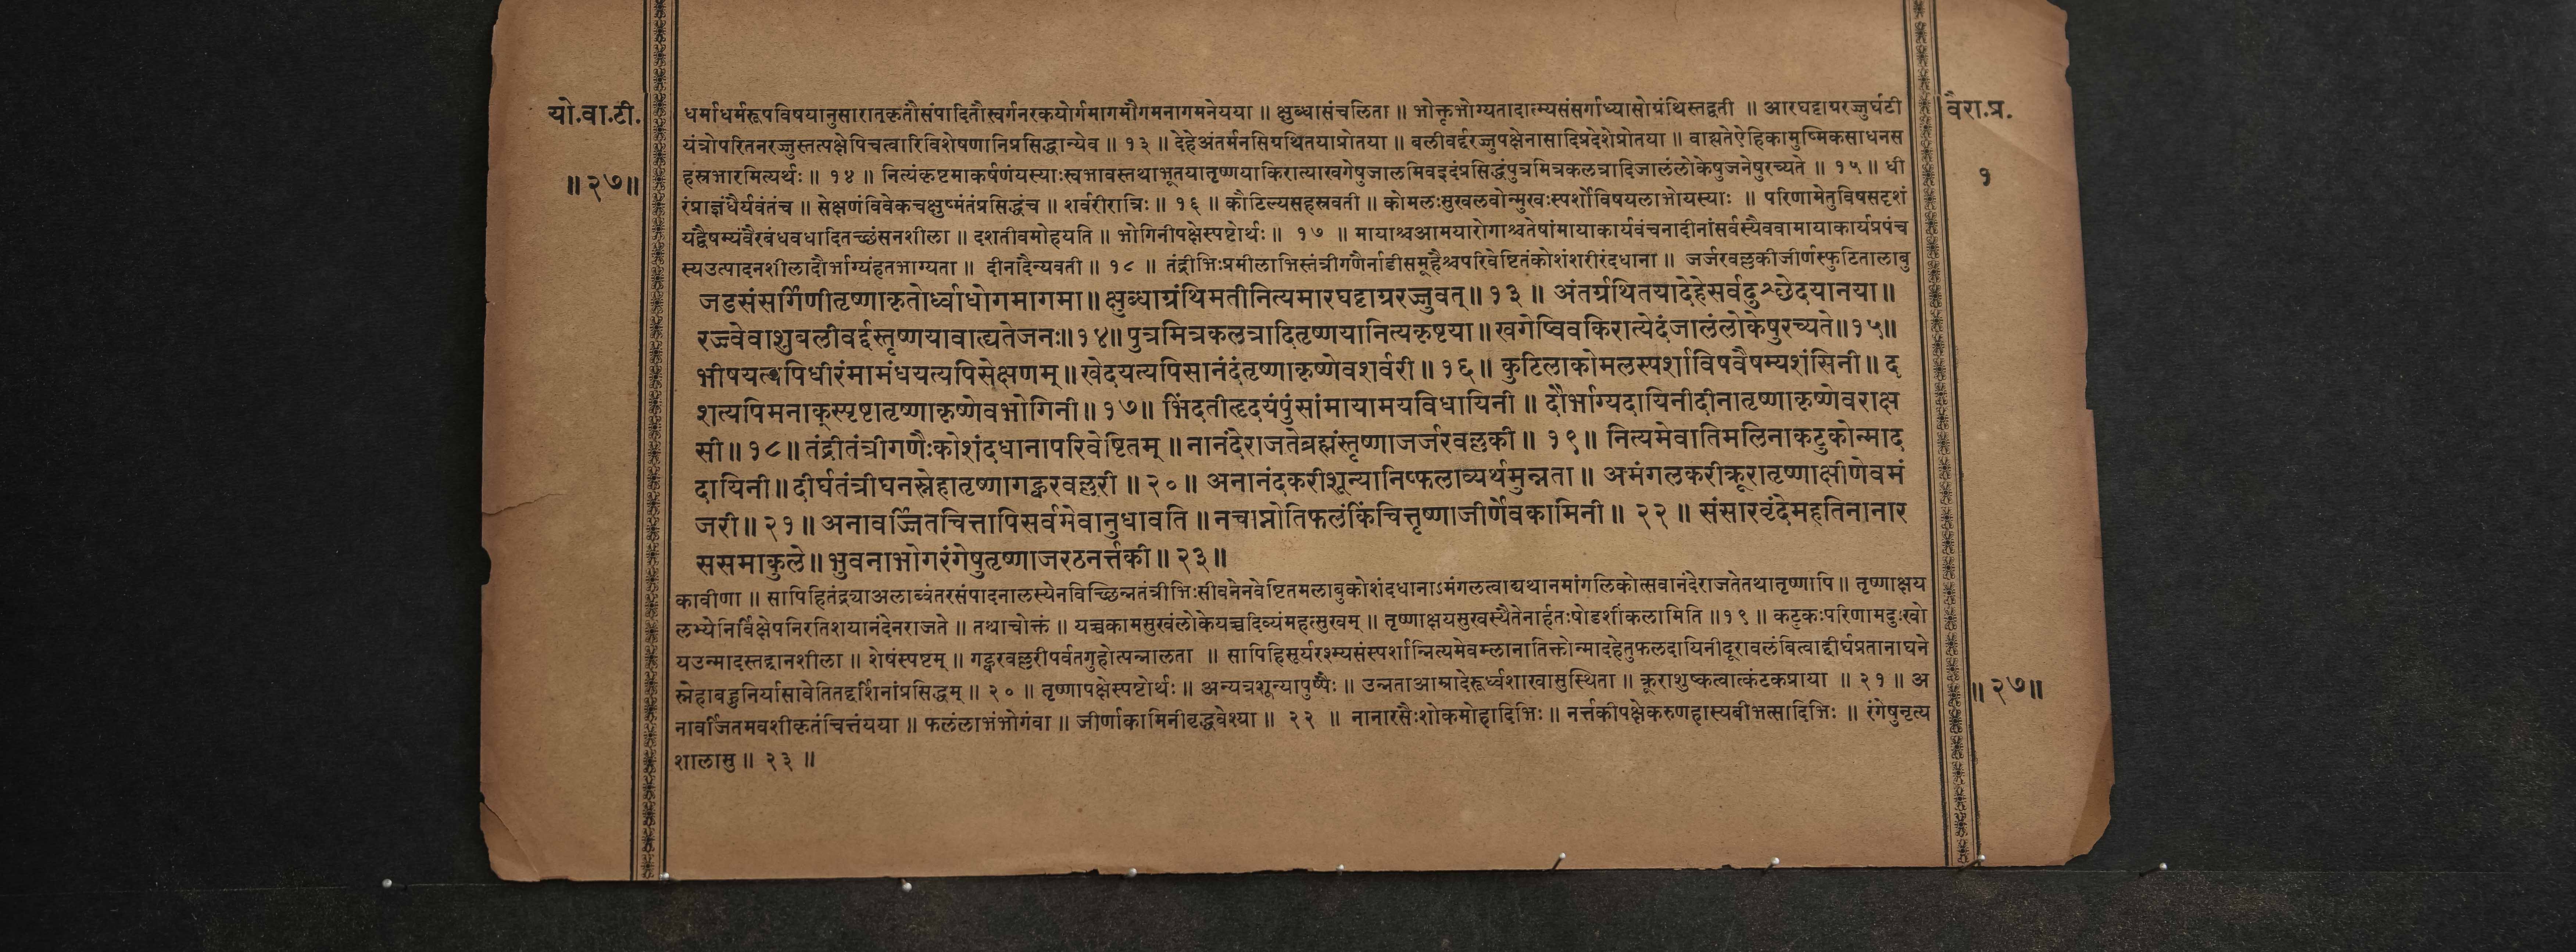 यो.वा.टी.
॥२७॥
वैरा.प्र.
१
धर्माधर्मरूपविषयानुसारात्कृतौसंपादितौस्वर्गनरकयोर्गमागमौगमनागमनेयया ॥ क्षुब्धासंचलिता ॥ भोक्तृभोग्यतादात्म्यसंसर्गाध्यासोग्रंथिस्तद्वती ॥ आरघट्टाग्ररज्जुर्घटी
यंत्रोपरितनरज्जुस्तत्पक्षेपिचत्वारिविशेषणानिप्रसिद्धान्येव ॥ १३ ॥ देहेअंतर्मनसिग्रथितयाप्रोतया ॥ बलीवर्द्दरज्जुपक्षेनासादिप्रदेशेप्रोतया ॥ वाह्यतेऐहिकामुष्मिकसाधनस
हस्रभारमित्यर्थः ॥ १४ ॥ नित्यंकृष्टमाकर्षणंयस्याःस्वभावस्तथाभूतयातृष्णयाकिरात्याखगेषुजालमिवइदंप्रसिद्धंपुत्रमित्रकलत्रादिजालंलोकेषुजनेषुरच्यते ॥ १५ ॥ धी
रंप्राज्ञंधैर्यवंतंच ॥ सेक्षणंविवेकचक्षुष्मंतंप्रसिद्धंच ॥ शर्वरीरात्रिः ॥ १६ ॥ कौटिल्यसहस्रवती ॥ कोमलःसुखलवोन्मुखःस्पर्शोविषयलाभोयस्याः ॥ परिणामेतुविषसदृशं
यद्वैषम्यंवैरबंधवधादितच्छंसनशीला ॥ दशतीवमोहयति ॥ भोगिनीपक्षेस्पष्टोर्थः ॥ १७ ॥ मायाश्चआमयारोगाश्चतेषांमायाकार्यवंचनादीनांसर्वस्यैववामायाकार्यप्रपंच
स्यउत्पादनशीलादौर्भाग्यंहतभाग्यता ॥ दीनादैन्यवती ॥ १८ ॥ तंद्रीभिःप्रमीलाभिस्तंत्रीगणैर्नाडीसमूहैश्चपरिवेष्टितंकोशंशरीरंदधाना ॥ जर्जरवल्लकीजीर्णस्फुटितालाबु
जडसंसर्गिणीतृष्णाकृतोर्ध्वाधोगमागमा ॥ क्षुब्धाग्रंथिमतीनित्यमारघट्टाग्ररज्जुवत् ॥ १३ ॥ अंतर्ग्रथितयादेहेसर्वदुश्छेदयानया ॥
रज्ज्वेवाशुबलीवर्द्दस्तृष्णयावाह्यतेजनः॥१४॥ पुत्रमित्रकलत्रादितृष्णयानित्यकृष्टया ॥ खगेष्विवकिरात्येदंजालंलोकेषुरच्यते॥१५॥
भीषयत्यपिधीरंमामंधयत्यपिसेक्षणम् ॥ खेदयत्यपिसानंदंतृष्णाकृष्णेवशर्वरी ॥ १६ ॥ कुटिलाकोमलस्पर्शाविषवैषम्यशंसिनी ॥ द
शत्यपिमनाक्स्पृष्टातृष्णाकृष्णेवभोगिनी ॥ १७ ॥ भिंदतीहृदयंपुंसांमायामयविधायिनी ॥ दौर्भाग्यदायिनीदीनातृष्णाकृष्णेवराक्ष
सी ॥ १८ ॥ तंद्रीतंत्रीगणैःकोशंदधानापरिवेष्टितम् ॥ नानंदेराजतेब्रह्मंस्तृष्णाजर्जरवल्लकी ॥ १९ ॥ नित्यमेवातिमलिनाकटुकोन्माद
दायिनी ॥ दीर्घतंत्रीघनस्नेहातृष्णागह्वरवल्लरी ॥ २० ॥ अनानंदकरीशून्यानिष्फलाव्यर्थमुन्नता ॥ अमंगलकरीक्रूरातृष्णाक्षीणेवमं
जरी ॥ २१ ॥ अनावर्ज्जितचित्तापिसर्वमेवानुधावति ॥ नचाप्नोतिफलंकिंचित्तृष्णाजीर्णेवकामिनी ॥ २२ ॥ संसारवृंदेमहतिनानार
ससमाकुले ॥ भुवनाभोगरंगेषुतृष्णाजरठनर्त्तकी ॥ २३ ॥
कावीणा ॥ सापिहितंद्र्याअलाब्वंतरसंपादनालस्येनविच्छिन्नतंत्रीभिःसीवनेनवेष्टितमलाबुकोशंदधानाऽमंगलत्वाद्यथानमांगलिकोत्सवानंदेराजतेतथातृष्णापि ॥ तृष्णाक्षय
लभ्येनिर्विक्षेपनिरतिशयानंदेनराजते ॥ तथाचोक्तं ॥ यच्चकामसुखंलोकेयच्चदिव्यंमहत्सुखम् ॥ तृष्णाक्षयसुखस्यैतेनार्हतःषोडशींकलामिति ॥१९ ॥ कटुकःपरिणामदुःखो
यउन्मादस्तद्दानशीला ॥ शेषंस्पष्टम् ॥ गह्वरवल्लरीपर्वतगुहोत्पन्नालता ॥ सापिहिसूर्यरश्म्यसंस्पर्शान्नित्यमेवम्लानातिक्तोन्मादहेतुफलदायिनीदूरावलंबित्वाद्दीर्घप्रतानाघने
स्नेहाबहुनिर्यासावेतितद्दर्शिनांप्रसिद्धम् ॥ २० ॥ तृष्णापक्षेस्पष्टोर्थः ॥ अन्यत्रशून्यापुष्पैः ॥ उन्नताआम्रादेरूर्ध्वशाखासुस्थिता ॥ क्रूराशुष्कत्वात्कंटकप्राया ॥ २१ ॥ अ
नावर्जितमवशीकृतंचित्तंयया ॥ फलंलाभंभोगंवा ॥ जीर्णाकामिनीवृद्धवेश्या ॥ २२ ॥ नानारसैःशोकमोहादिभिः ॥ नर्त्तकीपक्षेकरुणहास्यबीभत्सादिभिः ॥ रंगेषुनृत्य
शालासु ॥ २३ ॥
॥२७॥